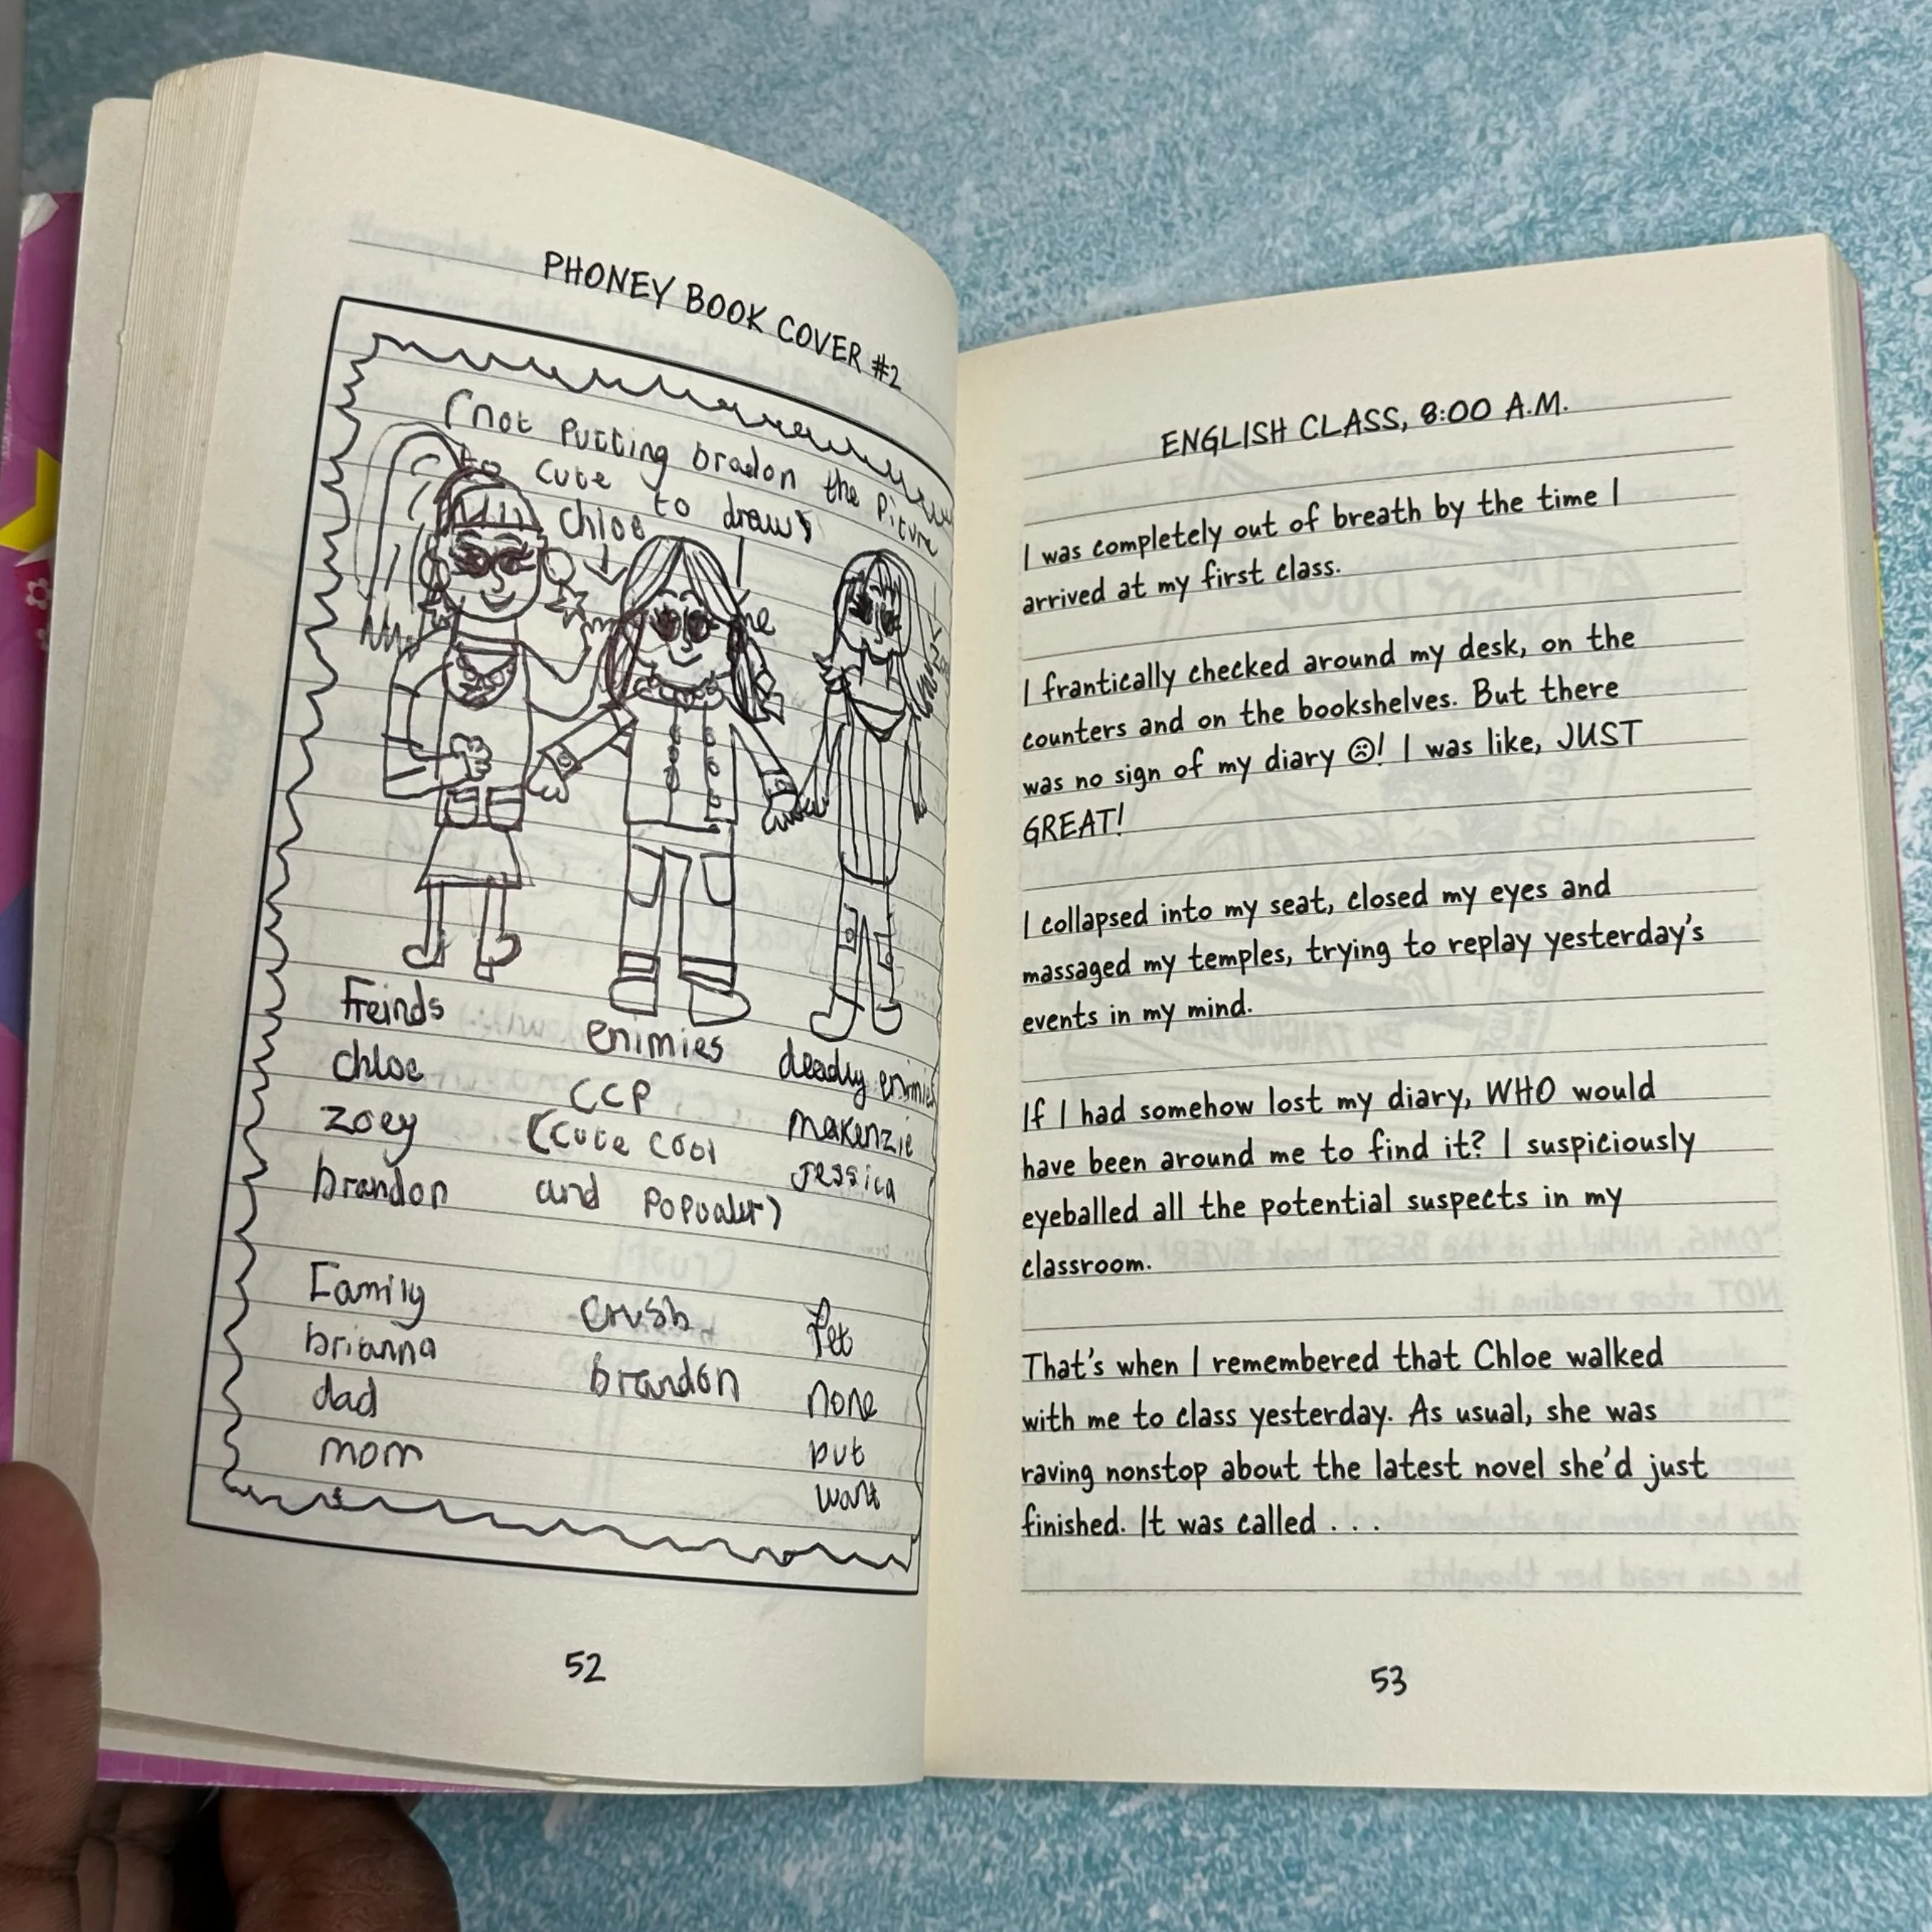 PHONEY BOOK COVER #2
(not putting bradon the Picture
to cute to draw)
chloe
me
Freinds
chloe
zoey
brandon
enimies
CCP
(cute cool
and Popualer)
deadly enimies
Makenzie
Jessica
Family
brianna
dad
mom
Crush
brandon
Pet
none
but
want
52
ENGLISH CLASS, 8:00 A.M.
I was completely out of breath by the time I
arrived at my first class.
I frantically checked around my desk, on the
counters and on the bookshelves. But there
was no sign of my diary ☹! I was like, JUST
GREAT!
I collapsed into my seat, closed my eyes and
massaged my temples, trying to replay yesterday's
events in my mind.
If I had somehow lost my diary, WHO would
have been around me to find it? I suspiciously
eyeballed all the potential suspects in my
classroom.
That's when I remembered that Chloe walked
with me to class yesterday. As usual, she was
raving nonstop about the latest novel she'd just
finished. It was called . . .
53